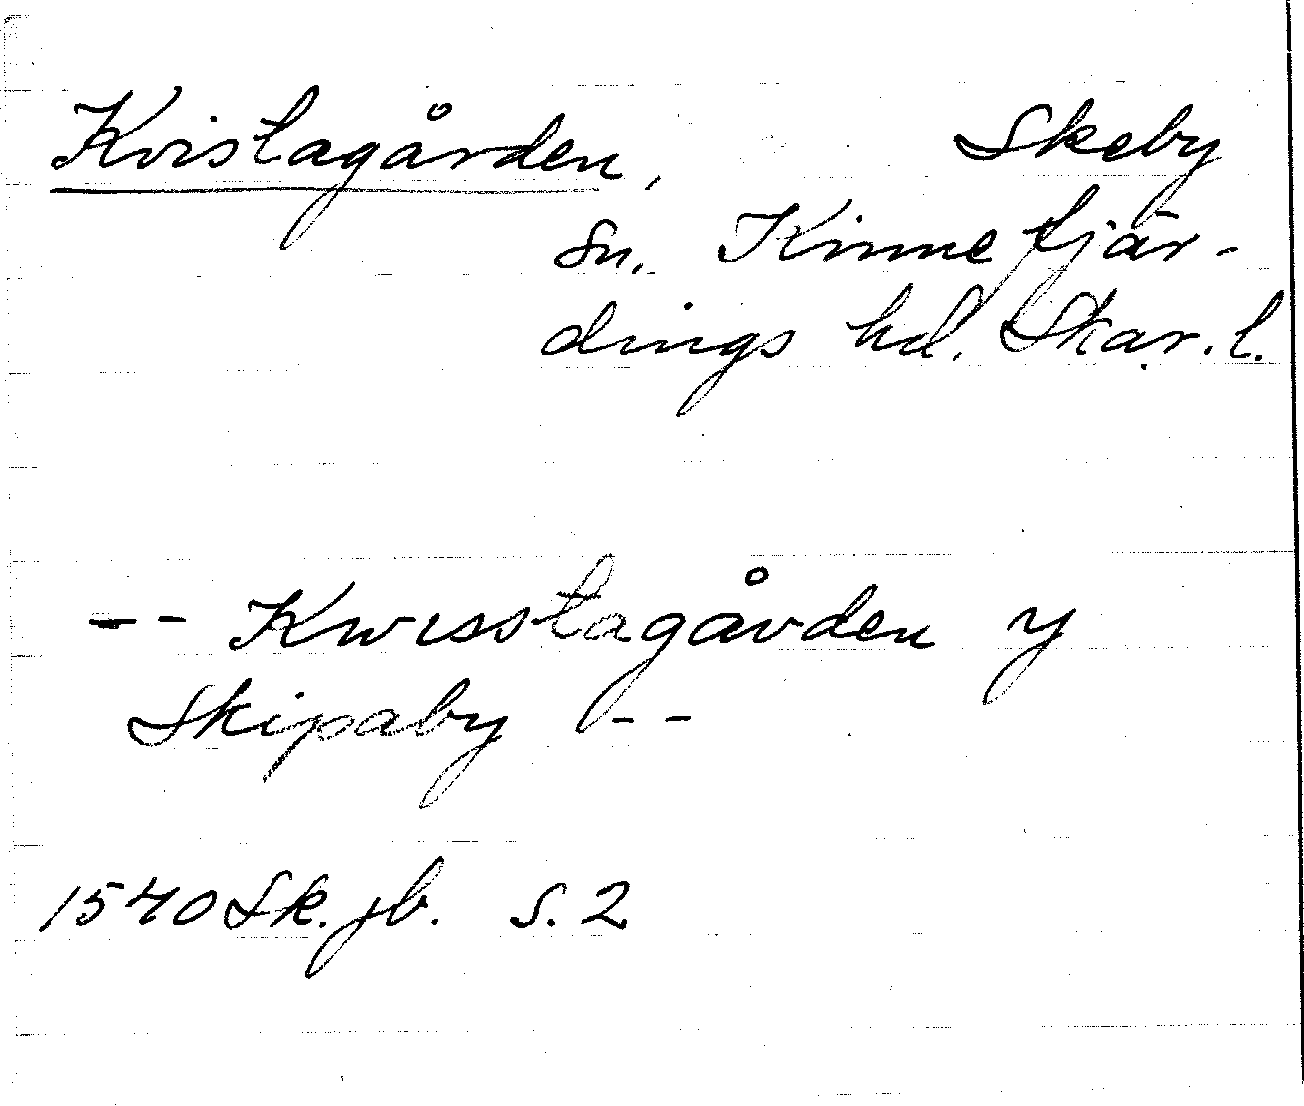 Kvistagården, Skeby
sn. Kinnefjär-
dings hd. Skar. l.
-- Kwisstagården y
Skipaby --
1540 Sk. jb. s. 2